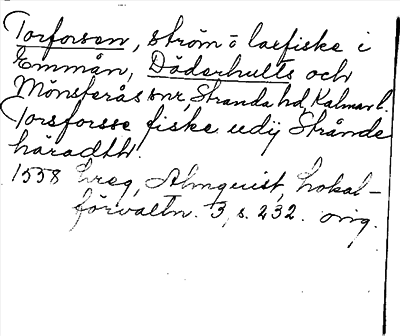 Torforsen, ström o laxfiske i
Emmån, Döderhults och
Mönsterås snr Stranda hd, Kalmar l.
Torsforsse fiske udij Strånde
häradtt.
1558 Almquist, Lokal-
förvaltn. 3, s. 232. orig.